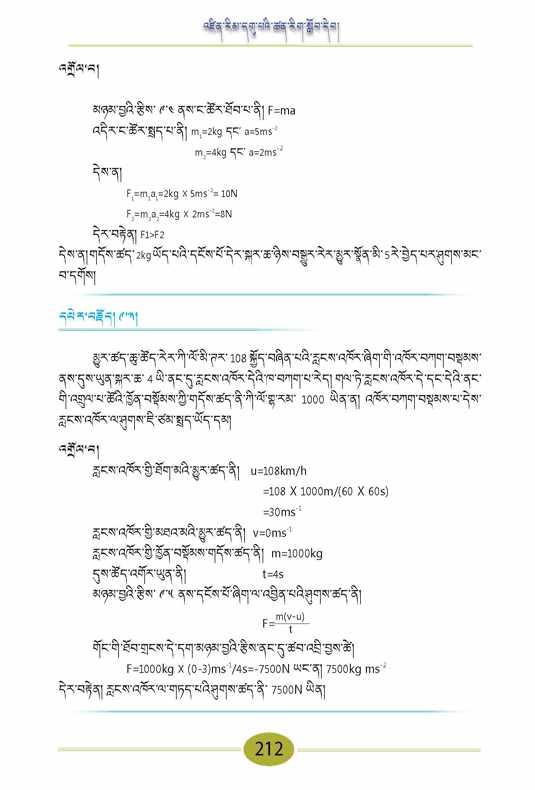 འཛིན་རིམ་དགུ་པའི་ཚན་རིག་སློབ་དེབ།
འགྲོལ་བ།
མཉམ་བྱའི་རྩིས་ ༩་༤ ནས་ང་ཚོར་ཐོབ་པ་ནི། F=ma
འདིར་ང་ཚོར་སྤྲད་པ་ནི། m₁=2kg དང་ a=5ms⁻²
m₂=4kg དང་ a=2ms⁻²
དེས་ན།
F₁=m₁a₁=2kg X 5ms⁻²= 10N
F₂=m₂a₂=4kg X 2ms⁻²=8N
དེར་བརྟེན། F1>F2
དེས་ན།གདོས་ཚད་ 2kg ཡོད་པའི་དངོས་པོ་དེར་སྐར་ཆ་ཉིས་བསྒྱུར་རེར་མྱུར་སྣོན་མི་ 5 རེ་བྱེད་པར་ཤུགས་མང་
བ་དགོས།
དཔེར་བརྗོད། ༩་༣།
མྱུར་ཚད་ཆུ་ཚོད་རེར་ཀི་ལོ་མི་ཊར་ 108 སྐྱོད་བཞིན་པའི་རླངས་འཁོར་ཞིག་གི་འཁོར་བཀག་བསྡམས་
ནས་དུས་ཡུན་སྐར་ཆ་ 4 ཡི་ནང་དུ་རླངས་འཁོར་དེའི་ཁ་བཀག་པ་རེད། གལ་ཏེ་རླངས་འཁོར་དེ་དང་དེའི་ནང་
གི་འགྲུལ་པ་ཚོའི་ཁྱོན་བསྡོམས་ཀྱི་གདོས་ཚད་ནི་ཀི་ལོ་གྷ་རམ་ 1000 ཡིན་ན། འཁོར་བཀག་བསྡམས་པ་དེས་
རླངས་འཁོར་ལ་ཤུགས་ཇི་ཙམ་སྤྲད་ཡོད་དམ།
འགྲོལ་བ།
རླངས་འཁོར་གྱི་ཐོག་མའི་མྱུར་ཚད་ནི། u=108km/h
=108 X 1000m/(60 X 60s)
=30ms⁻¹
རླངས་འཁོར་གྱི་མཐའ་མའི་མྱུར་ཚད་ནི། v=0ms⁻¹
རླངས་འཁོར་གྱི་ཁྱོན་བསྡོམས་གདོས་ཚད་ནི། m=1000kg
དུས་ཚོད་འགོར་ཡུན་ནི། t=4s
མཉམ་བྱའི་རྩིས་ ༩་༥ ནས་དངོས་པོ་ཞིག་ལ་འབྱིན་པའི་ཤུགས་ཚད་ནི།
F=m(v-u)
t
གོང་གི་ཐོབ་གྲངས་དེ་དག་མཉམ་བྱའི་རྩིས་ནང་དུ་ཚབ་འབྲི་བྱས་ཚེ།
F=1000kg X (0-3)ms⁻¹/4s=-7500N ཡང་ན། 7500kg ms⁻²
དེར་བརྟེན། རླངས་འཁོར་ལ་གཏད་པའི་ཤུགས་ཚད་ནི་ 7500N ཡིན།
212